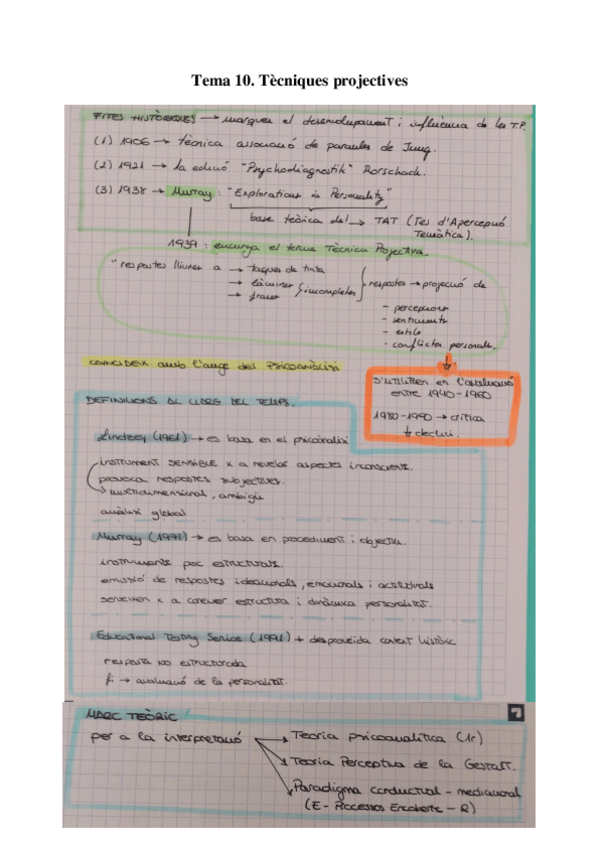 Tema 10. Tècniques projectives
FITES HISTÒRIQUES → marquen el desenvolupament i influència de les T.P.
(1) 1906 → tècnica associació de paraules de Jung.
(2) 1921 → 1a edició "Psychodiagnostik" Rorschach.
(3) 1938 → Murray: "Explorations in Personality"
base teòrica del → TAT (Tes d'Apercepció
Temàtica).
1939: encunya el terme Tècnica Projectiva.
"respostes lliures a → taques de tinta
→ làmines
→ frases
incompletes
respostes → projecció de
- percepcions
- sentiments
- estils
- conflictes personals.
COINCIDEIX amb l'auge del PSICOANÀLISI
S'utilitzen en l'avaluació
entre 1940-1960
1980-1990 → crítica
↓ declivi.
DEFINICIONS AL LLARG DEL TEMPS.
Lindzey (1961) → es basa en el psicoanàlisi
instrument SENSIBLE x a revelar aspectes inconscients.
provoca respostes subjectives.
multidimensional, ambigu
anàlisi global
Murray (1971) → es basa en procediment i objectiu.
instruments poc estructurats.
emissió de respostes ideacionals, emocionals i actitudinals
serveixen x a conèixer estructura i dinàmica personalitat.
Educational Testing Service (1991) + desproveïda context històric
resposta NO estructurada
fi → avaluació de la personalitat.
MARC TEÒRIC
per a la interpretació
→ Teoria psicoanalítica (1r)
→ Teoria Perceptiva de la Gestalt.
→ Paradigma conductual - mediacional
(E - Processos Encoberts - R)